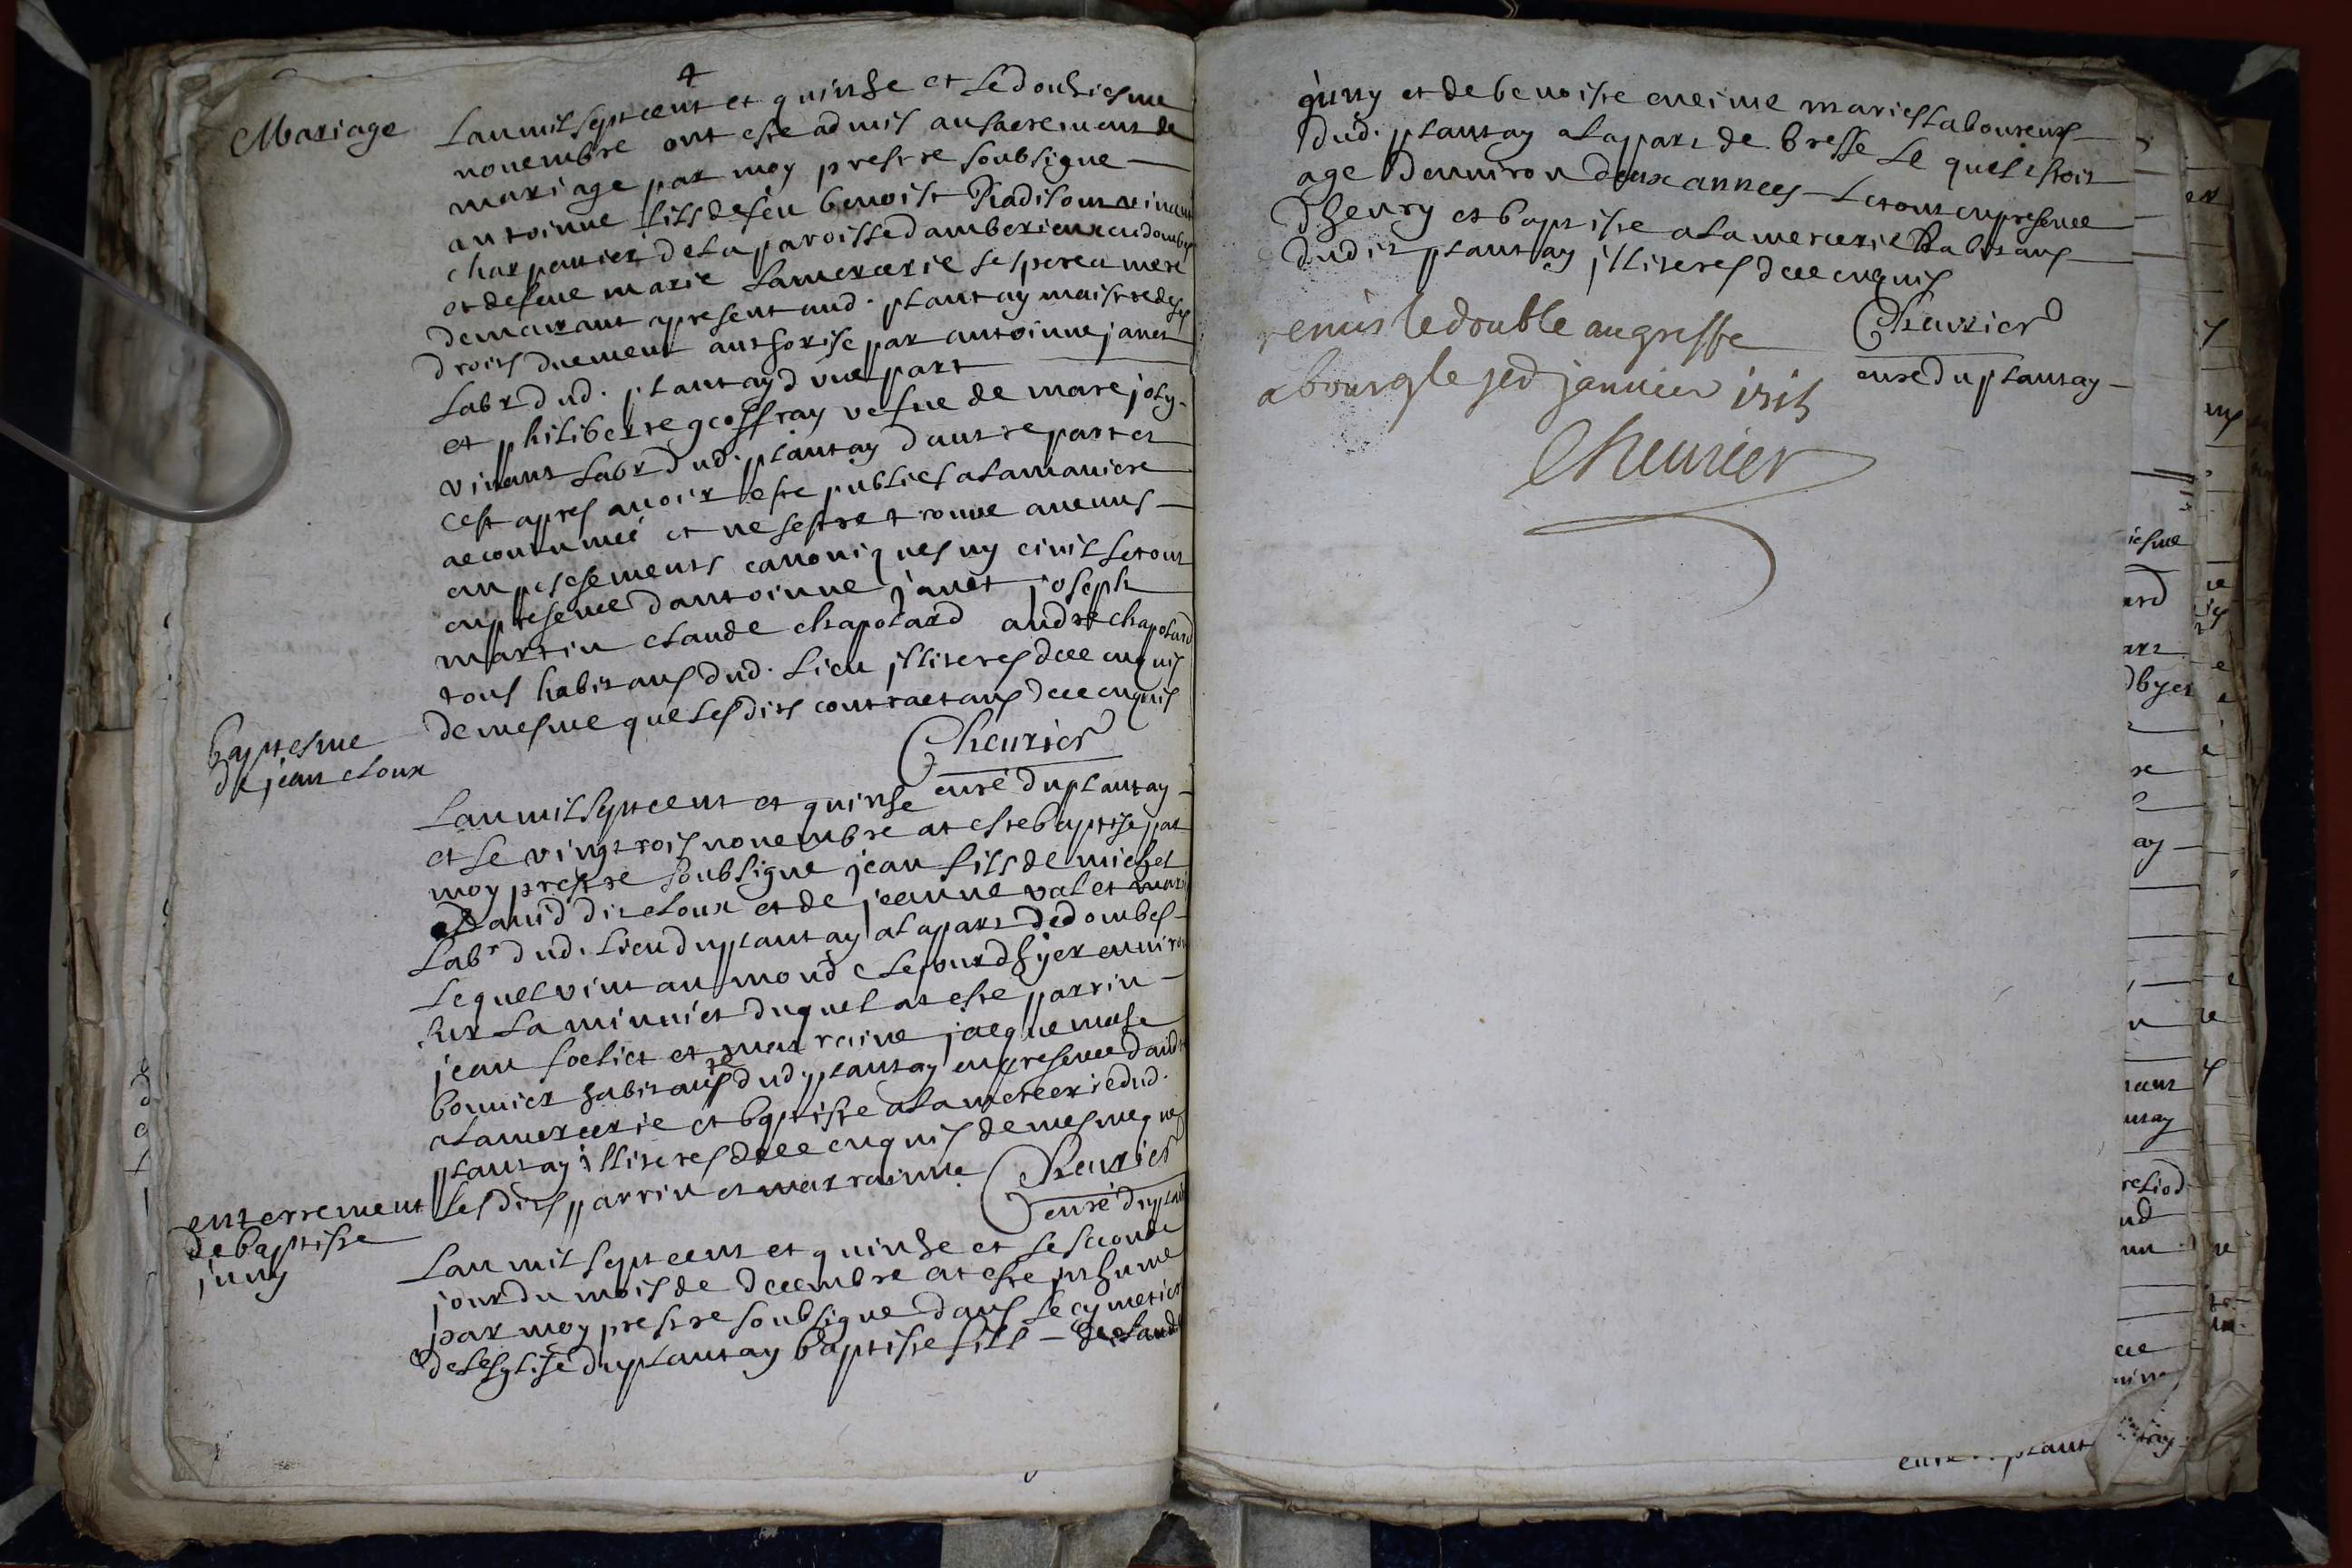 Mariage
Lan mil sept cent et quinse et le dousiesme
novembre ont este admis au sacrement de
mariage par moy prestre soubsigne
antoinne fils de feu benoist vivant
charpantier de la paroisse damberieux en dombes
et de feue marie Lamercerie ses pere et mere
demeurant apresent aud. plantay maistre de ses
droits duement authorise par antoinne janet
Labr dud. plantay dune part
et philiberte geoffray vefue de mare joly
vivant Labr dud. plantay dautre part et
cest apres avoir este publies a la maniere
accoutumée et ne sestre trouve aucuns
canoniques ny civil le tout
en presence dantoinne janet joseph
martin claude chapolard andre chapolard
tous habitans dud. lieu illiteres de ce enquis
de mesme que lesdits contractans de ce enquis
Cheurier
curé du plantay
baptesme
de jean cloux
Lan mil sept cent et quinse
et le vingt trois novembre at este baptise par
moy prestre soubsigne jean fils de michel
david dit cloux et de jeanne valet
Labr dud. lieu du plantay a la part de dombes
lequel vint au monde le jour dhyer environ
sur la minuict duquel at este parrin
jean et marraine jacquemase
bonnier habitans dud. plantay en presence
alamercerie et baptiste alamercerie dud.
plantay illiteres de ce enquis de mesme que
les dits parrin et marrainne Cheurier
curé du
enterrement
de baptiste
juny
Lan mil sept cent et quinse et le second
jour du mois de decembre at este inhume
par moy prestre soubsigne dans le cymetier
de leglise du plantay baptiste fils de claude
juny et de benoiste maries laboureurs
dud. plantay a la part de bresse le quel estoit
age denviron deux annees le tout en presence
dhenry et baptiste alamercerie habitans
dudit plantay illiteres de ce enquis
Cheurier
curé du plantay
remis le double au greffe
a bourg le janvier
Cheurier